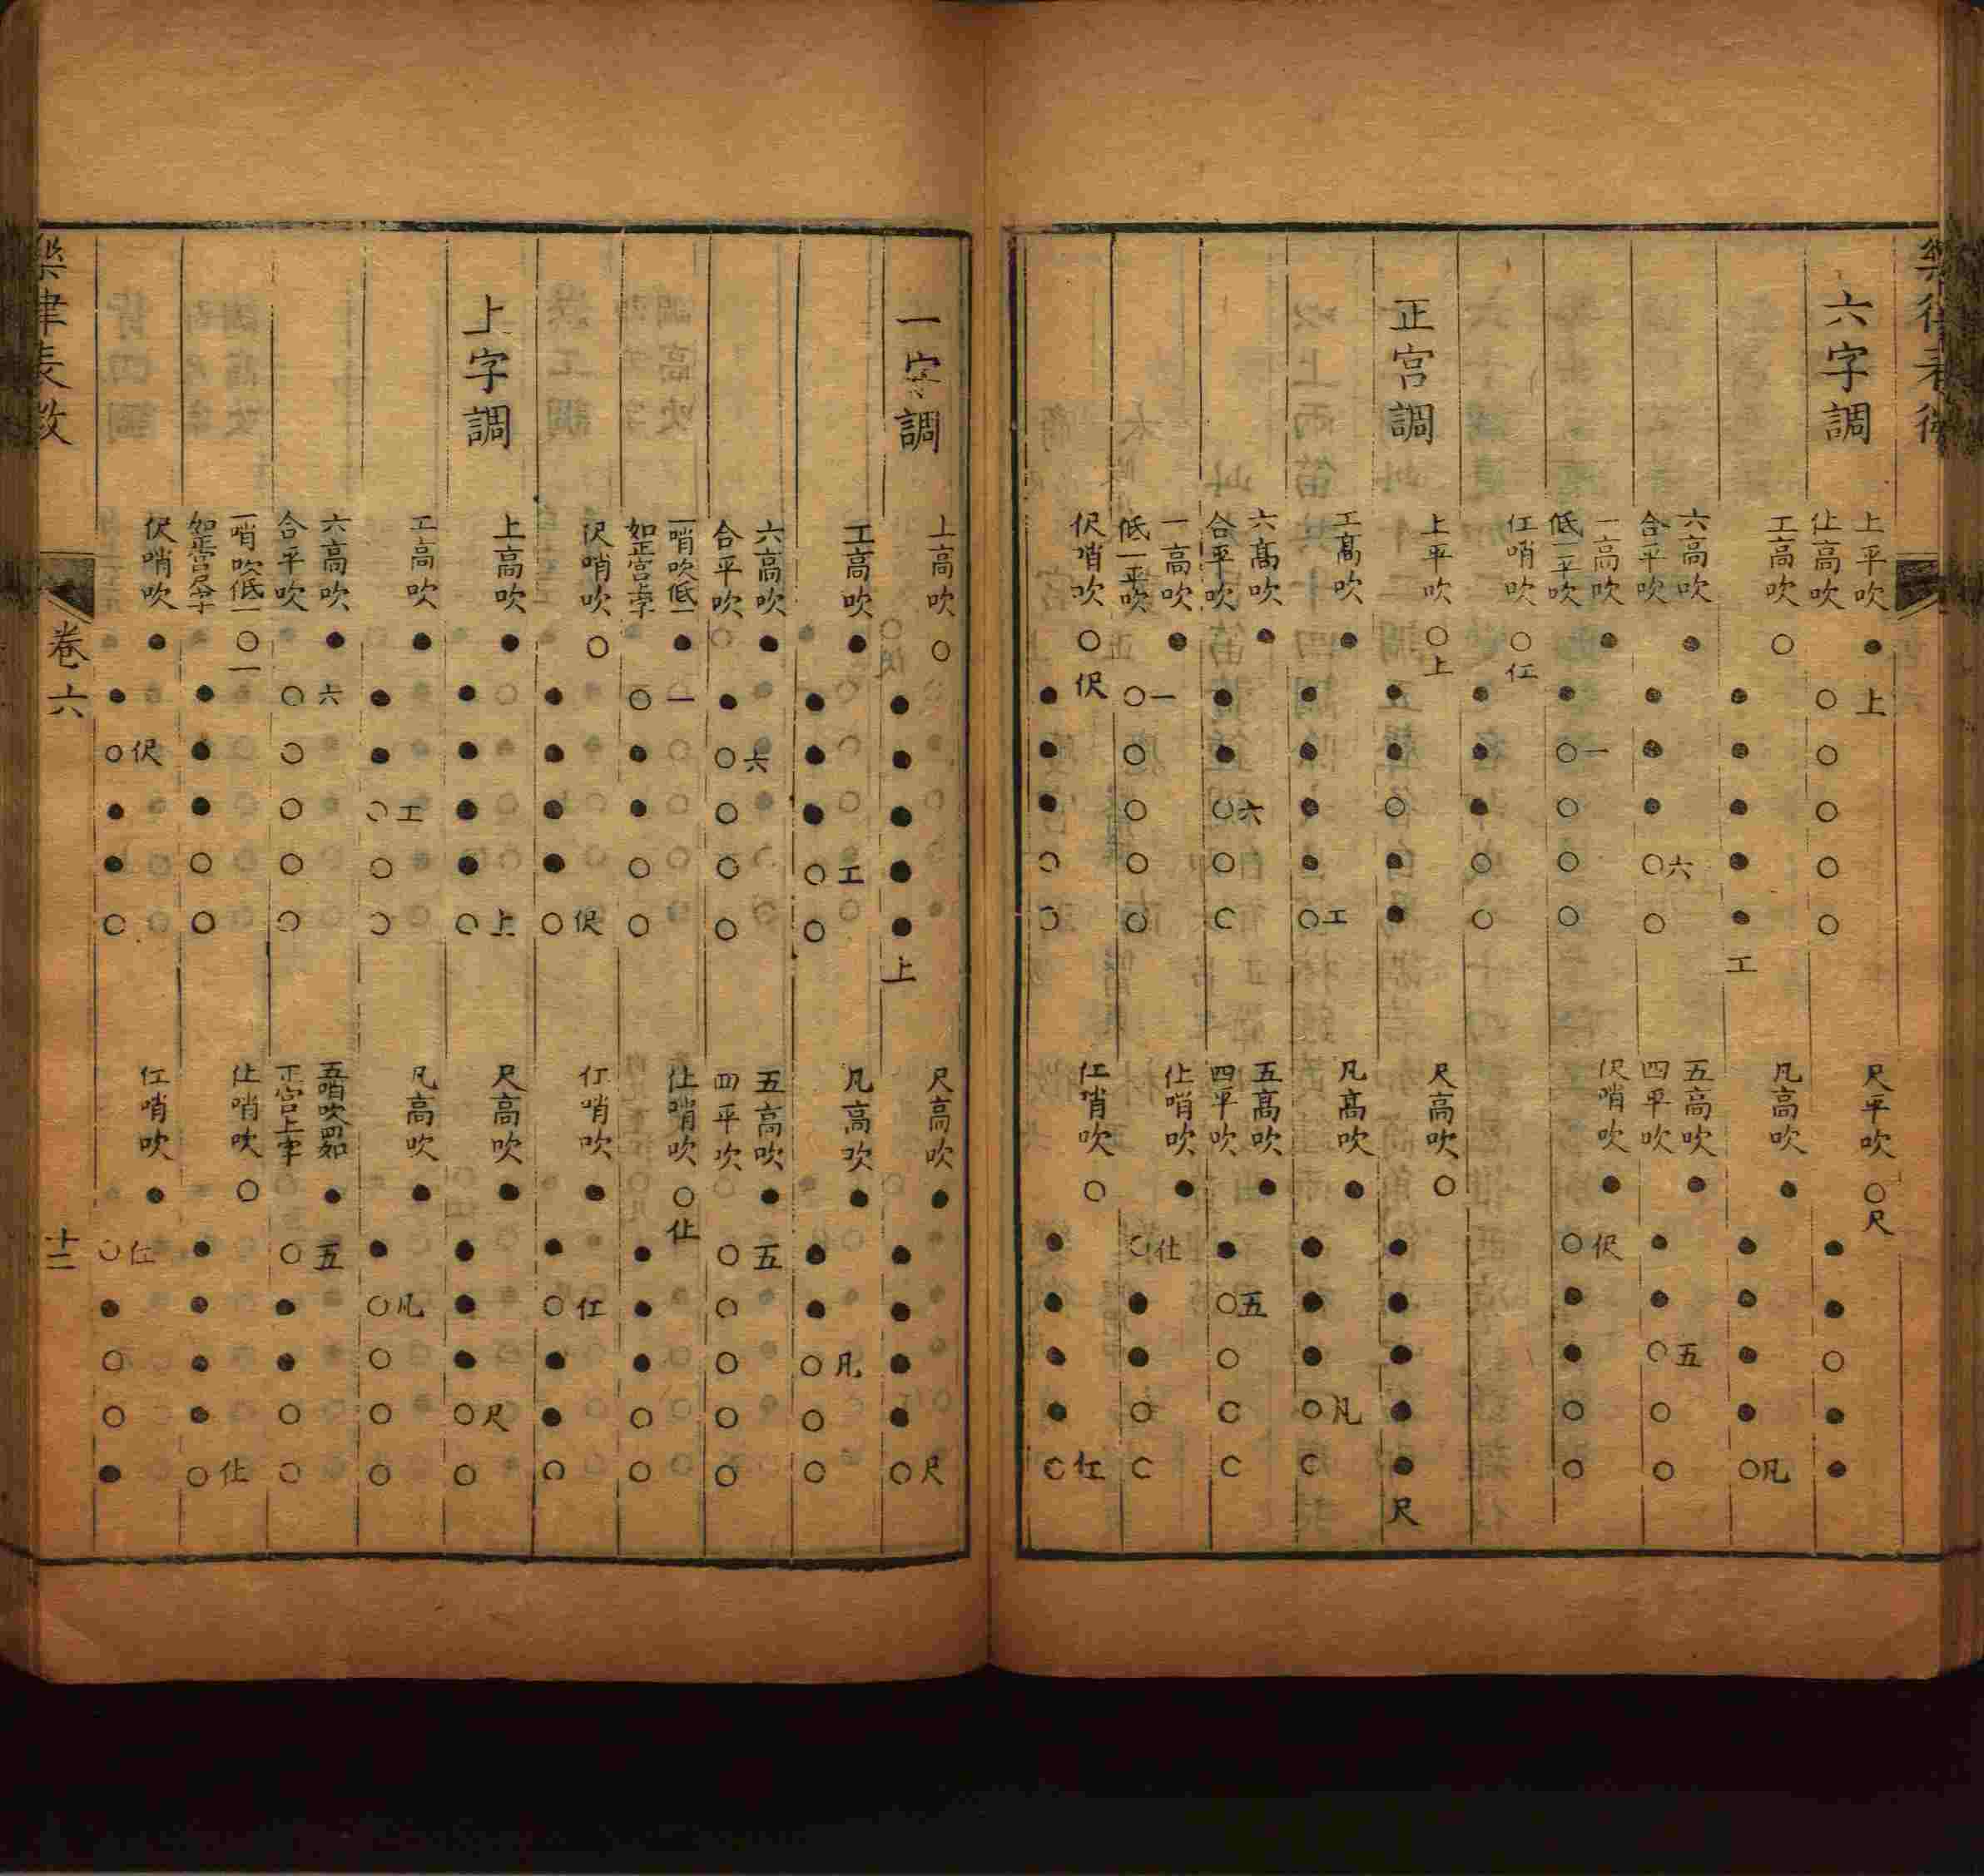 六字調
上平吹
仩高吹
●上
○○○○○
尺平吹
○尺
●●○●●
工高吹
○
●●●●●工
凡高吹
●
●●●●○凡
六高吹
合平吹
●
●●●○六○
五高吹
四平吹
●
●●○五○○
一高吹
低一平吹
●
●○一○○○
伬哨吹
●
○伬●●○○
仜哨吹
○仜
●●●○○
正宮調
上平吹
○上
●●○●●
尺高吹
○
●●●●●尺
工高吹
●
●●●●○工
凡高吹
●
●●●○凡○
六高吹
合平吹
●
●●○六○○
五高吹
四平吹
●
●○五○○○
一高吹
低一平吹
●
○一○○○○
仩哨吹
●
○仩●●○○
伬哨吹
○伬
●●●○○
仜哨吹
○
●●●●○仜
一字調
上高吹
○
●●●●●上
尺高吹
●
●●●●○尺
工高吹
●
●●●○工○
凡高吹
●
●●○凡○○
六高吹
合平吹
●
●○六○○○
五高吹
四平吹
●
○五○○○○
一哨吹低一
如正宮上字
●
○一●●○○
仩哨吹
○仩
●●●○○
伬哨吹
○
●●●●○伬
仜哨吹
●
●○仜●●○
上字調
上高吹
●
●●●●○上
尺高吹
●
●●●○尺○
工高吹
●
●●○工○○
凡高吹
●
●○凡○○○
六高吹
合平吹
●
○六○○○○
五哨吹四如
正宮上字
●
○五●●○○
一哨吹低一
如正宮尺字
○一
●●●○○
仩哨吹
○
●●●●○仩
伬哨吹
●
●○伬●●○
仜哨吹
●
○仜●○○●
卷六
十二